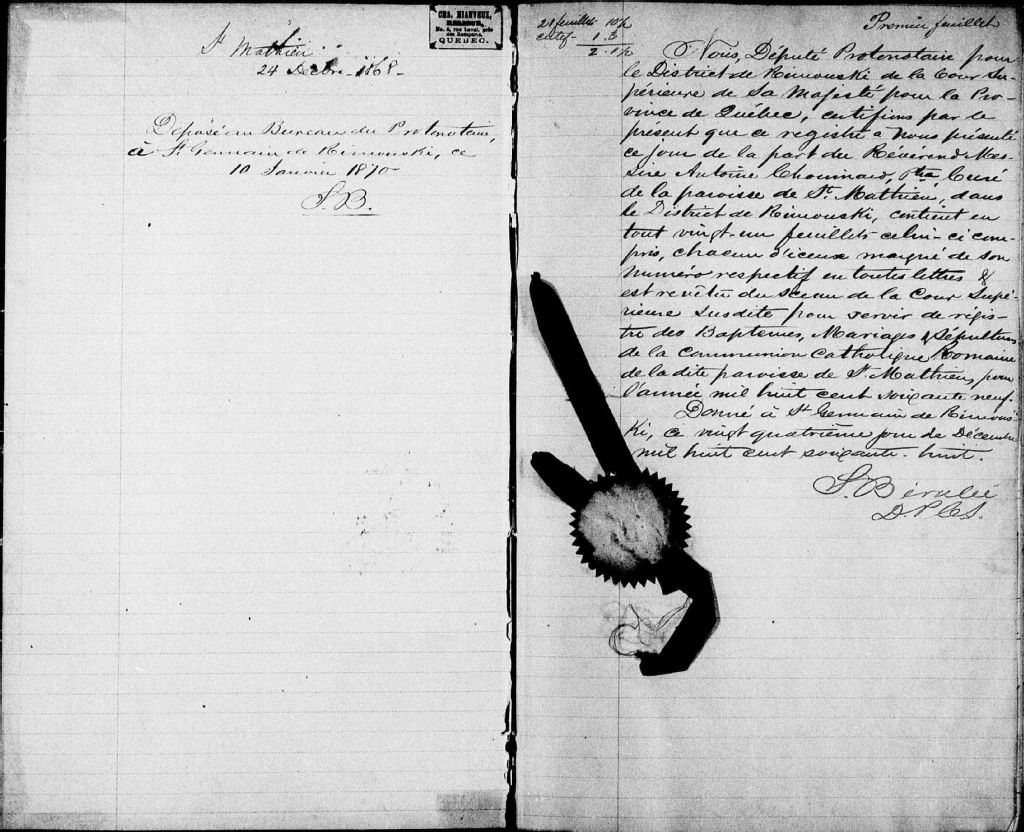 CHS. HIANVEUX,
RELIEUR,
No. 8, rue Laval, près
des Remparts,
QUEBEC.
St Mathieu
24 Décbre 1868-
Déposé au Bureau du Protonotaire,
à St Germain de Rimouski, ce
10 Janvier 1870
S.B.
21 feuillets 10½
certif- 1.3
2.1½
Premier feuillet
Nous, Député Protonotaire pour
le District de Rimouski de la Cour Su-
périeure de Sa Majesté pour la Pro-
vince de Québec, certifions par le
présent que ce registre a nous présenté
ce jour de la part du Révérend Mes-
sire Antoine Chouinard, Ptre Curé
de la paroisse de St. Mathieu, dans
le District de Rimouski, contient en
tout vingt-un feuillets celui-ci com-
pris, chacun d'iceux marqué de son
numéro respectif en toutes lettres &
est revêtu du sceau de la Cour Supé-
rieure susdite pour servir de régis-
tre des Baptêmes, Mariages & Sépultures
de la communion Catholique Romaine
de la dite paroisse de St. Mathieu, pour
l'année mil huit cent soixante neuf.
Donné à St Germain de Rimous-
ki, ce vingt quatrième jour de Décembre
mil huit cent soixante-huit.
D.P.C.S.